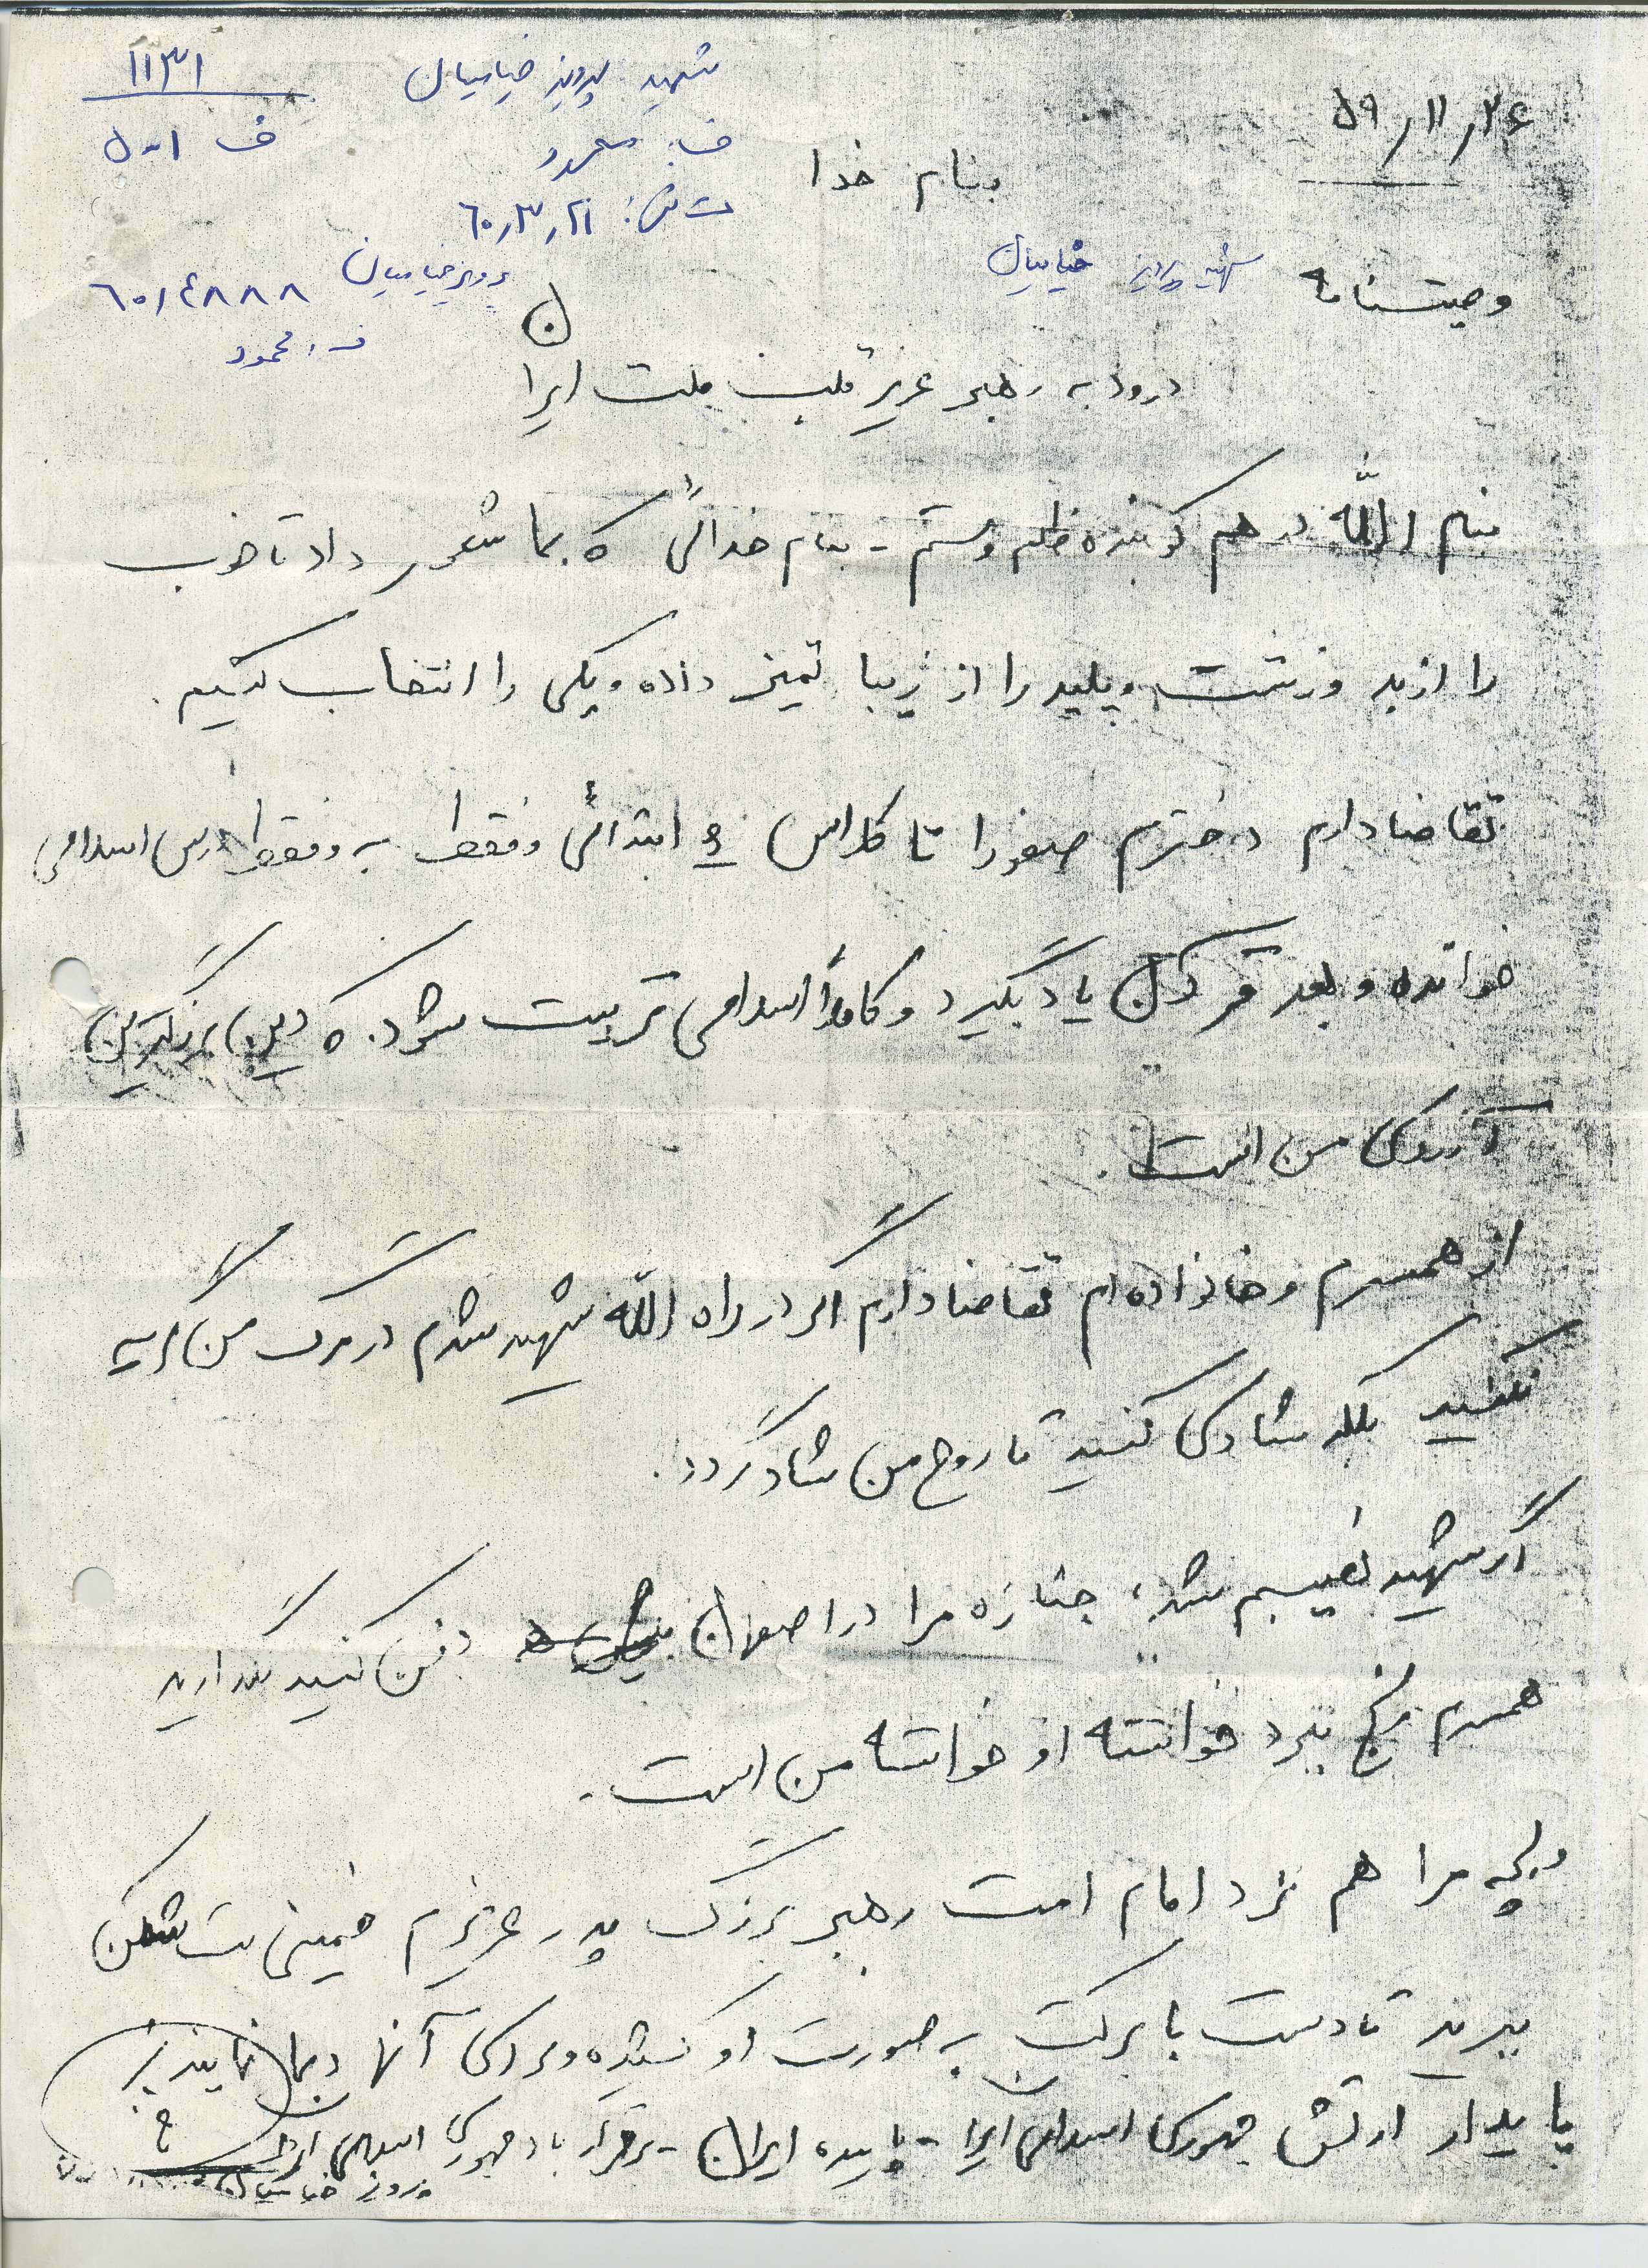 ۵۹/۱۱/۲۶
شهید پرویز خیامیان
۱۱۳۱
ف ۵۰۰۱
ف: محمود
بنام خدا
ت ش: ۶۰/۳/۲۱
وصیتنامه
شهید پرویز خیامیان
پرویز خیامیان ۶۰/۴۸۸۸
ف: محمود
درود به رهبر عزیز قلب ملت ایران
بنام الله در هم کوبنده ظلم و ستم - بنام خدائی که بما شعور داد تا خوب
را از بد و زشت و پلید را از زیبا تمیز داده و یکی را انتخاب کنیم.
تقاضا دارم دخترم صفورا تا کلاس ۵ ابتدائی و فقط به و فقط درس اسلامی
خوانده و بعد قرآن یاد بگیرد و کاملاً اسلامی تربیت شود. که این بزرگترین
آرزوی من است.
از همسرم و خانواده ام تقاضا دارم اگر در راه الله شهید شدم در مرگ من گریه
نکنید بلکه شادی کنید تا روح من شاد گردد.
اگر شهید نصیبم شد، جنازه مرا در اصفهان دفن کنید نگذارید
همسرم رنج ببرد خواسته او خواسته من است.
و بچه مرا هم نزد امام امت رهبر بزرگ پدر عزیزم خمینی بت شکن
ببرید تا دست با برکت به صورت او کشیده و برای آنها دعا نمایند
پایدار ارتش جمهوری اسلامی ایران - پاینده ایران - برقرار باد جمهوری اسلامی ایران
پرویز خیامیان